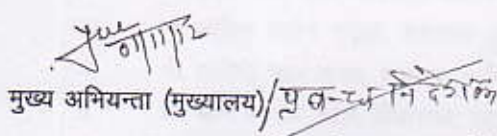 01/11/12
मुख्य अभियन्ता (मुख्यालय)/प्रबन्ध निदेशक